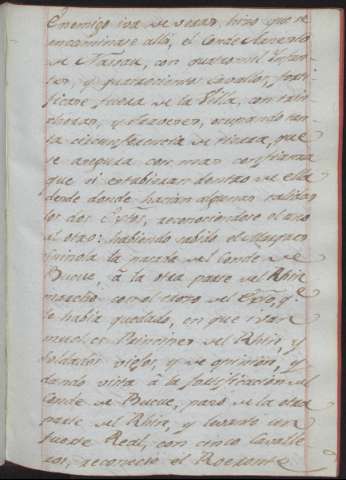 Enemigo iva de veras, hizo que se
encaminase allá, el Conde Arnesto
de Nassau, con quatro mil Infan-
tes, y quatrocientos Cavallos, forti-
ficase fuera de la Villa, con trin-
cheras, y ocupando tan-
ta circunferencia de tierra, que
se arguia con mas confianza
que si estubieran dentro de ella
desde donde hacian algunas salidas
los dos Exto, reconociendose el uno
al otro: habiendo sabido el Marques
Spinola la pasada del Conde de
Bucoe, à la otra parte del Rhin
marchó con el resto del Exto, q.e
le habia quedado, en que ivan
muchos Principes del Rhin, y
soldados viejos, y de opinion, y
dando vista à la fortificacion del
Conde de Bucoe, pasó de la otra
parte del Rhin, y levantó un
fuerte Real, con cinco Cavalle-
ros, reconoció el